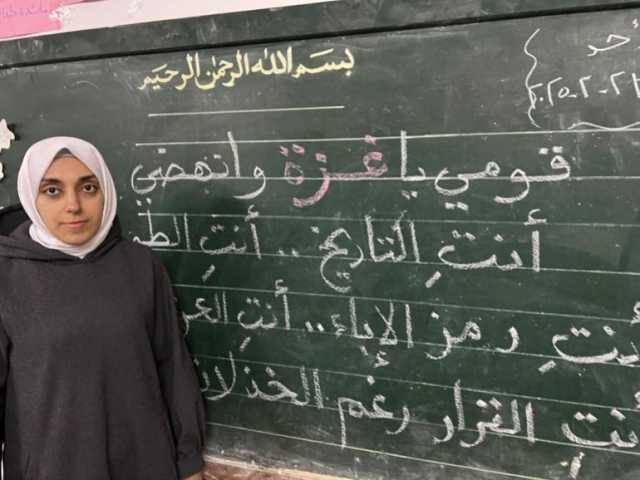 بسم الله الرحمن الرحيم
أحد
قومي يا غزة وانهضي
أنتِ التاريخ .. أنتِ
أنتِ رمز الإباء .. أنتِ
أنتِ القرار رغم الخذلان